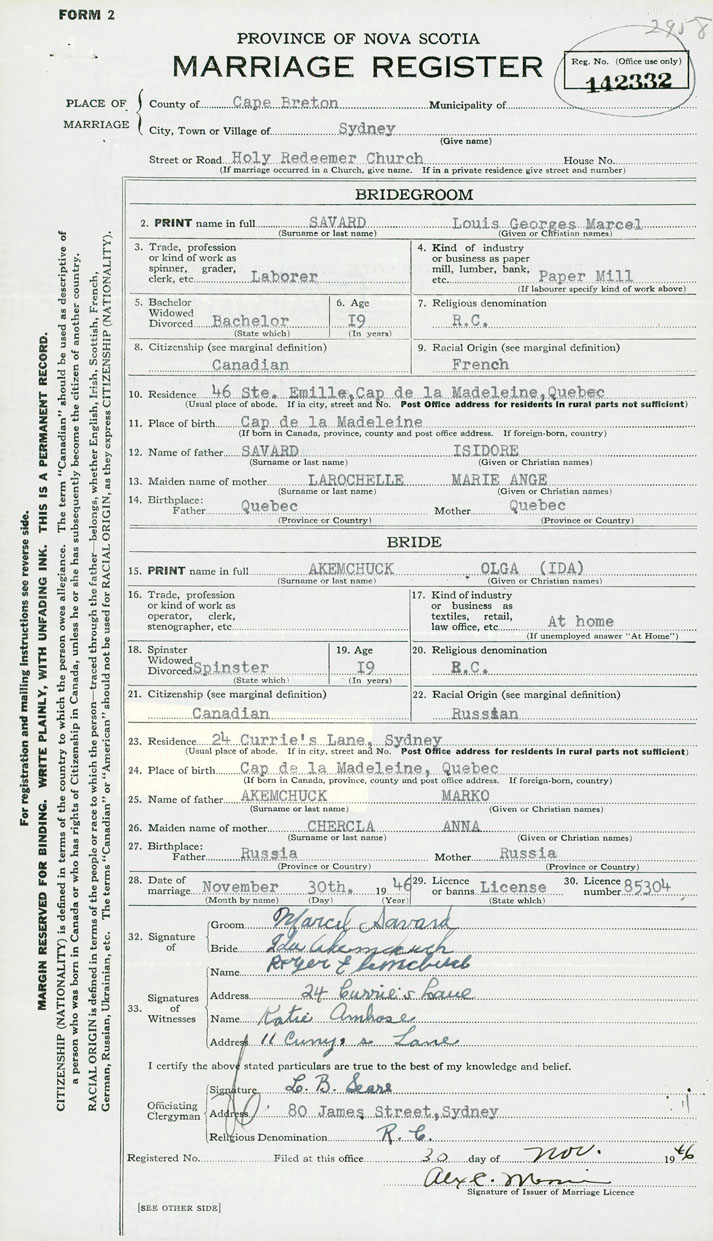 FORM 2
2958
PROVINCE OF NOVA SCOTIA
MARRIAGE REGISTER
Reg. No. (Office use only)
142332
PLACE OF MARRIAGE
County of Cape Breton Municipality of
City, Town or Village of Sydney
(Give name)
Street or Road Holy Redeemer Church House No.
(If marriage occurred in a Church, give name. If in a private residence give street and number)
BRIDEGROOM
2. PRINT name in full SAVARD Louis Georges Marcel
(Surname or last name) (Given or Christian names)
3. Trade, profession or kind of work as spinner, grader, clerk, etc. Laborer
4. Kind of industry or business as paper mill, lumber, bank, etc. Paper Mill
(If labourer specify kind of work above)
5. Bachelor Widowed Divorced Bachelor
(State which)
6. Age I9
(In years)
7. Religious denomination
R.C.
8. Citizenship (see marginal definition)
Canadian
9. Racial Origin (see marginal definition)
French
10. Residence 46 Ste. Emille,Cap de la Madeleine,Quebec
(Usual place of abode. If in city, street and No. Post Office address for residents in rural parts not sufficient)
11. Place of birth Cap de la Madeleine
(If born in Canada, province, county and post office address. If foreign-born, country)
12. Name of father SAVARD ISIDORE
(Surname or last name) (Given or Christian names)
13. Maiden name of mother LAROCHELLE MARIE ANGE
(Surname or last name) (Given or Christian names)
14. Birthplace:
Father Quebec Mother Quebec
(Province or Country) (Province or Country)
BRIDE
15. PRINT name in full AKEMCHUCK OLGA (IDA)
(Surname or last name) (Given or Christian names)
16. Trade, profession or kind of work as operator, clerk, stenographer, etc.
17. Kind of industry or business as textiles, retail, law office, etc. At home
(If unemployed answer "At Home")
18. Spinster Widowed Divorced Spinster
(State which)
19. Age I9
(In years)
20. Religious denomination
R.C.
21. Citizenship (see marginal definition)
Canadian
22. Racial Origin (see marginal definition)
Russian
23. Residence 24 Currie's Lane, Sydney
(Usual place of abode. If in city, street and No. Post Office address for residents in rural parts not sufficient)
24. Place of birth Cap de la Madeleine, Quebec
(If born in Canada, province, county and post office address. If foreign-born, country)
25. Name of father AKEMCHUCK MARKO
(Surname or last name) (Given or Christian names)
26. Maiden name of mother CHERCLA ANNA
(Surname or last name) (Given or Christian names)
27. Birthplace:
Father Russia Mother Russia
(Province or Country) (Province or Country)
28. Date of marriage November 30th. 1946
(Month by name) (Day) (Year)
29. Licence or banns License
(State which)
30. Licence number 85304
32. Signature of
Groom Marcel Savard
Bride Ida Akemchuck
33. Signatures of Witnesses
Name Roger
Address 24 Currie's Lane
Name Katie Ambrose
Address 11 Lane
I certify the above stated particulars are true to the best of my knowledge and belief.
Officiating Clergyman
Signature L. B. Sears
Address 80 James Street,Sydney
Religious Denomination R. C.
Registered No. Filed at this office 30 day of Nov. 1946
Alex C.
Signature of Issuer of Marriage Licence
[SEE OTHER SIDE]
For registration and mailing instructions see reverse side.
MARGIN RESERVED FOR BINDING. WRITE PLAINLY, WITH UNFADING INK. THIS IS A PERMANENT RECORD.
CITIZENSHIP (NATIONALITY) is defined in terms of the country to which the person owes allegiance. The term "Canadian" should be used as descriptive of
a person who was born in Canada or who has rights of Citizenship in Canada, unless he or she has subsequently become the citizen of another country.
RACIAL ORIGIN is defined in terms of the people or race to which the person—traced through the father—belongs, whether English, Irish, Scottish, French,
German, Russian, Ukrainian, etc. The terms "Canadian" or "American" should not be used for RACIAL ORIGIN, as they express CITIZENSHIP (NATIONALITY).